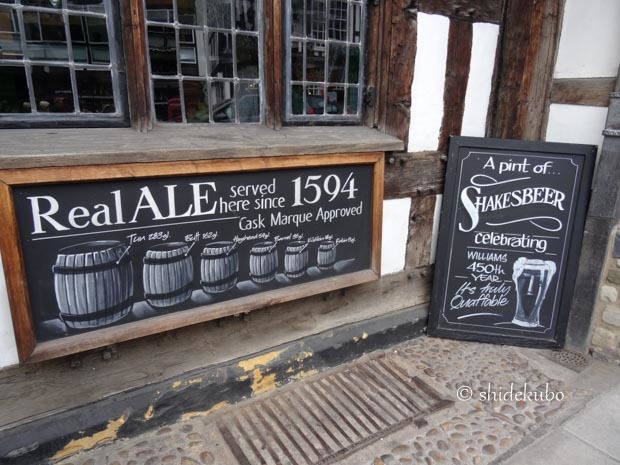 Real ALE served here since 1594
Cask Marque Approved
Tun 283gl. Butt 162gl. Hogshead 54gl. Barrel 36gl. Kilderkin 18gl. Firkin 9gl.
A pint of...
SHAKESBEER
celebrating
WILLIAMS
450th
YEAR
It's truly
Quaffable
© shidekubo